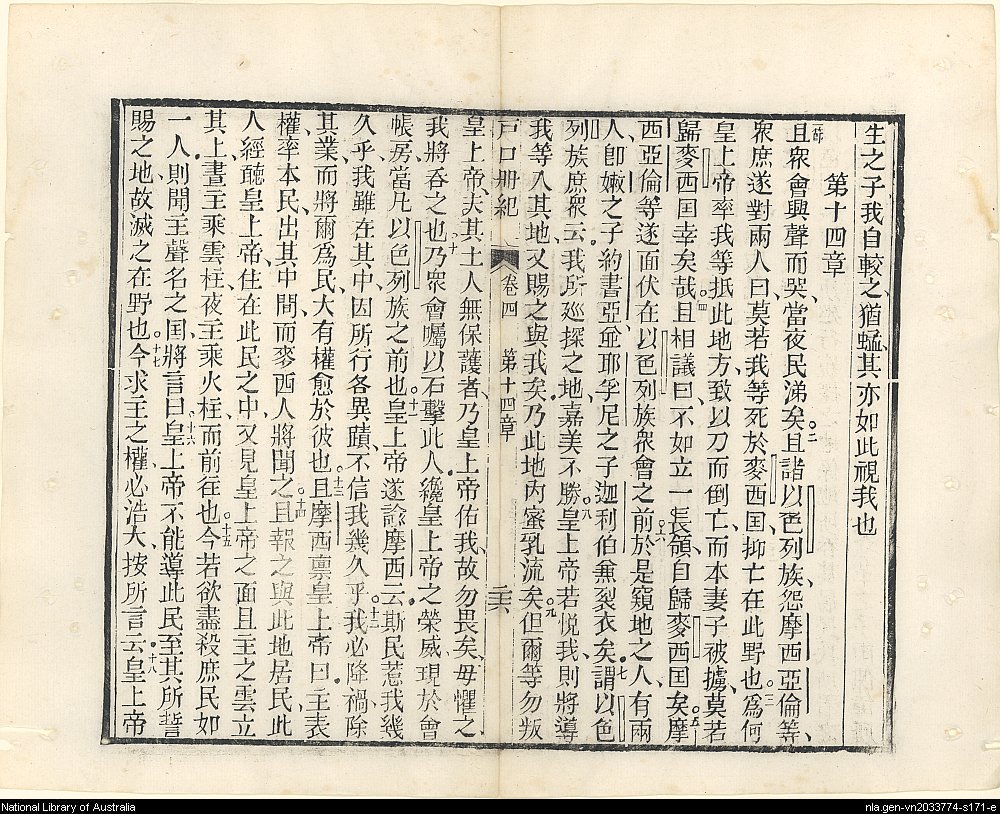 生之子我自較之猶蜢其亦如此視我也
第十四章
且衆會興聲而哭當夜民涕矣○二且諸以色列族怨摩西亞倫等
衆庶遂對兩人曰莫若我等死於麥西国抑亡在此野也○三爲何
皇上帝率我等抵此地方致以刀而倒亡而本妻子被擄莫若
歸麥西国幸矣哉○四且相議曰不如立一長領自歸麥西国矣○五摩
西亞倫等遂面伏在以色列族衆會之前○六於是窺地之人有兩
人卽嫩之子約書亞並耶孚尼之子迦利伯兼裂衣矣○七謂以色
列族庶衆云我所廵探之地嘉美不勝○八皇上帝若悅我則將導
我等入其地又賜之與我矣乃此地內蜜乳流矣○九但爾等勿叛
戶口册紀 卷四 第十四章 二六
皇上帝夫其土人無保護者乃皇上帝佑我故勿畏矣毋懼之
我將吞之也○十乃衆會囑以石擊此人纔皇上帝之榮威現於會
帳房當凡以色列族之前也○十一皇上帝遂諭摩西云斯民惹我幾
久乎我雖在其中因所行各異蹟不信我幾久乎○十二我必降禍除
其業而將爾爲民大有權愈於彼也○十三且摩西禀皇上帝曰主表
權率本民出其中間而麥西人將聞之○十四且報之與此地居民此
人經聽皇上帝住在此民之中又見皇上帝之面且主之雲立
其上晝主乘雲柱夜主乘火柱而前往也○十五今若欲盡殺庶民如
一人則聞主聲名之国將言曰○十六皇上帝不能導此民至其所誓
賜之地故滅之在野也○十七今求主之權必浩大按所言云○十八皇上帝
National Library of Australia
nla.gen-vn2033774-s171-e